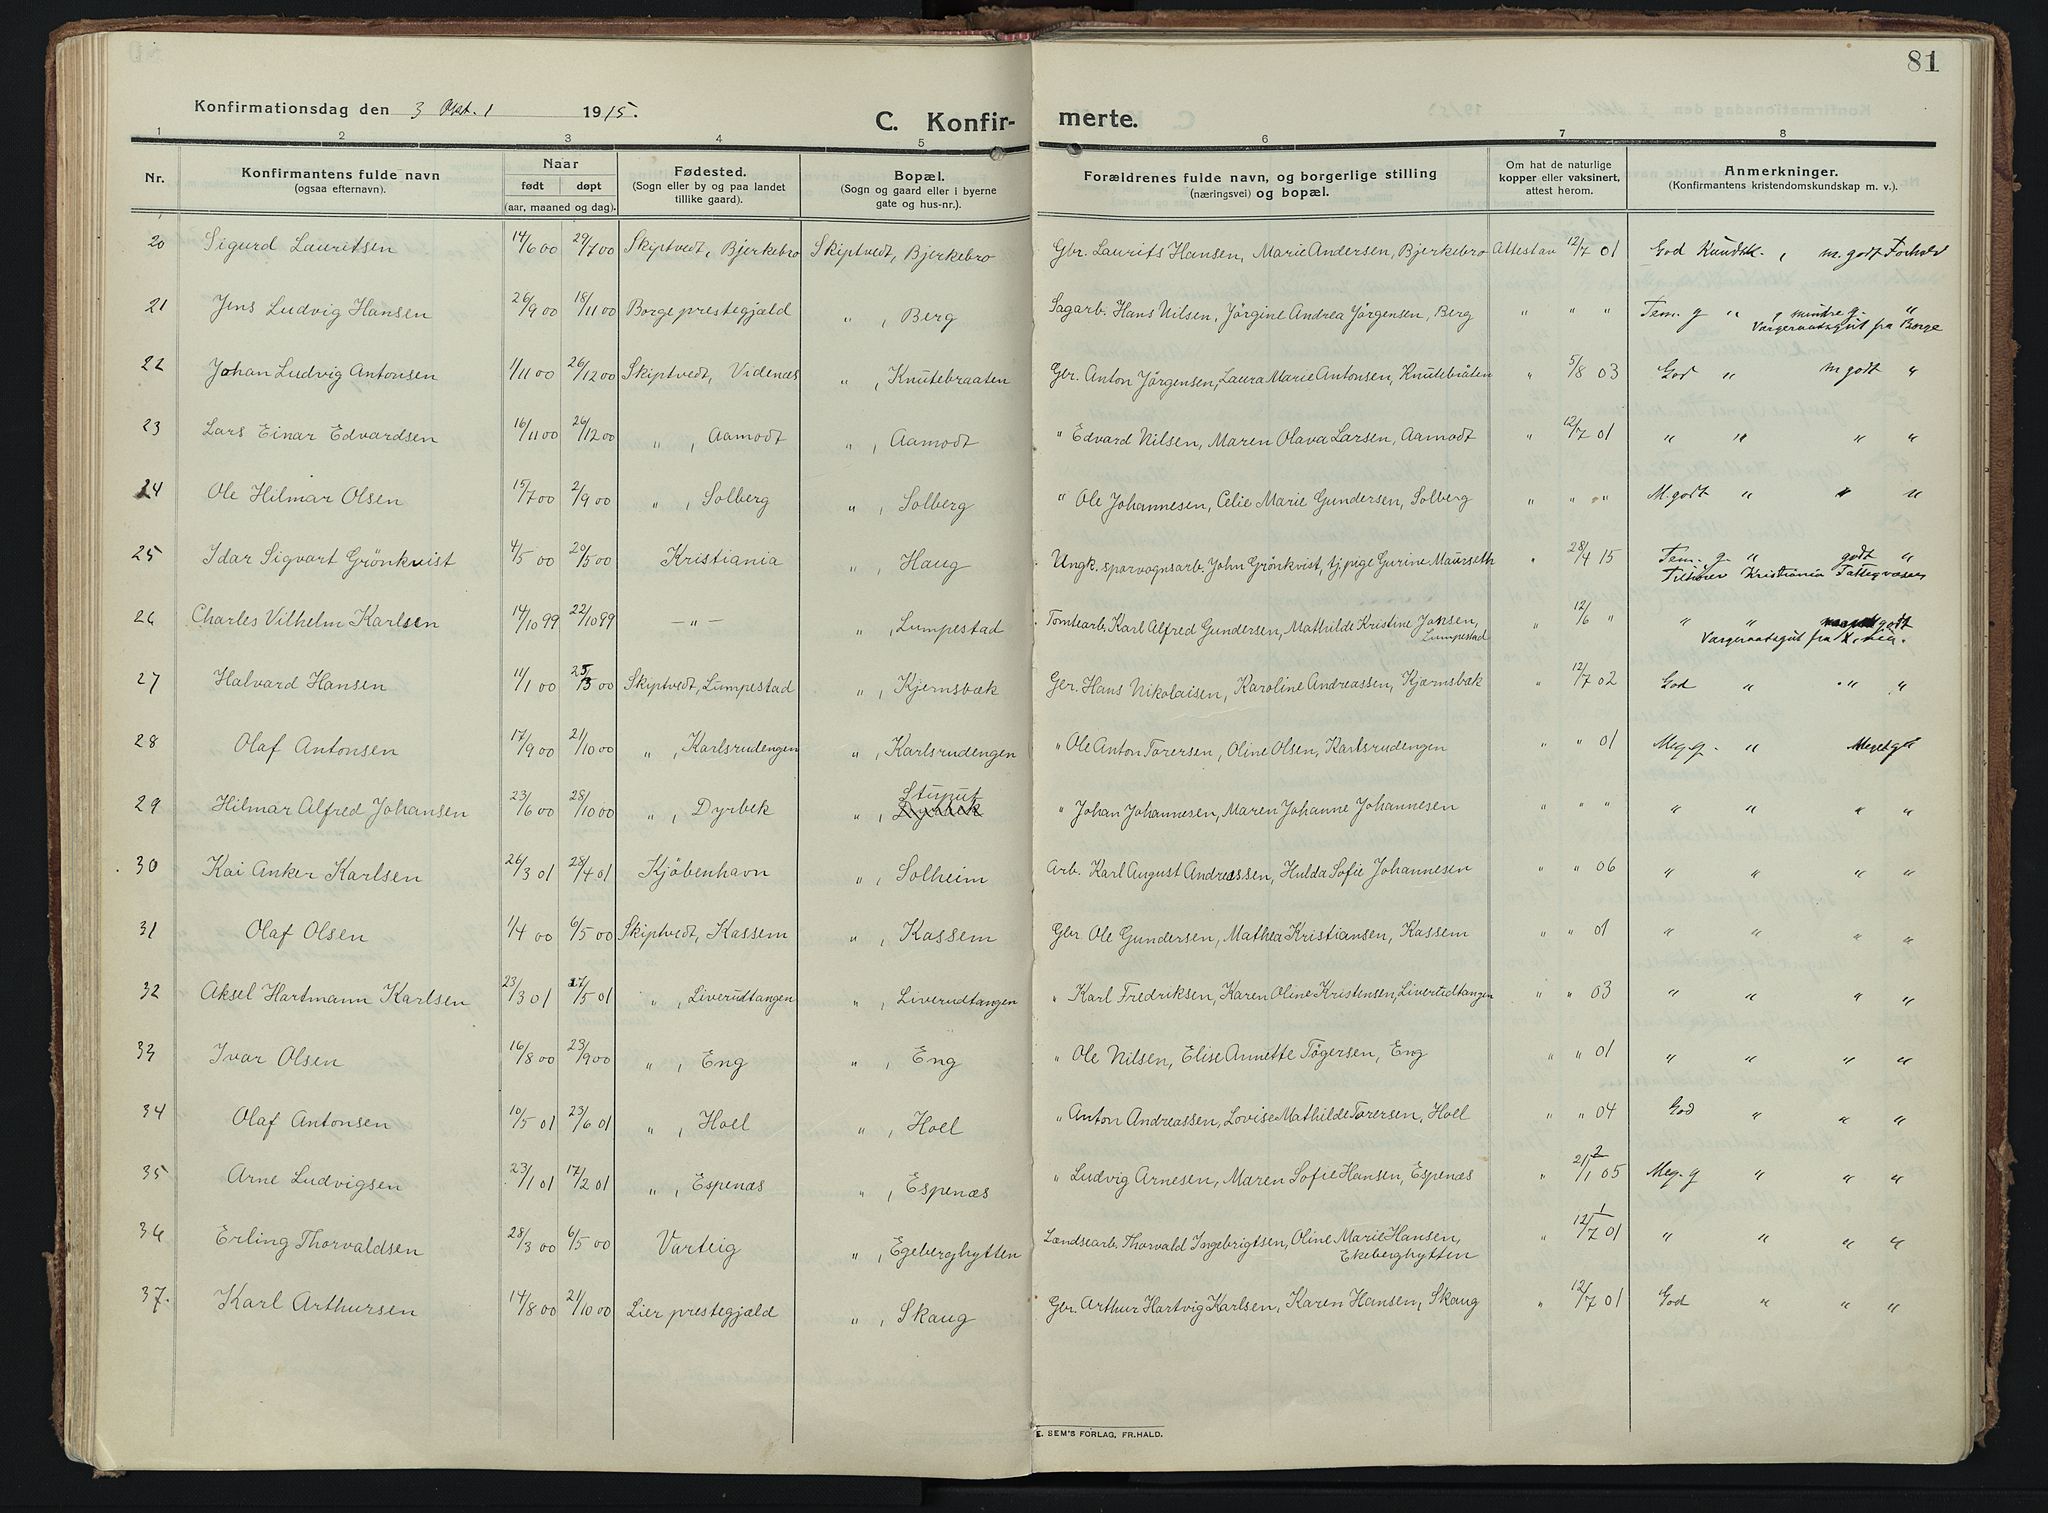 81
Konfirmationsdag den 3 Okt. 1915.
C. Konfirmerte.
1 2 3 4 5 6 7 8
Nr. Konfirmantens fulde navn (ogsaa efternavn). Naar født døpt (aar, maaned og dag). Fødested. (Sogn eller by og paa landet tillike gaard). Bopæl. (Sogn og gaard eller i byerne gate og hus-nr.). Forældrenes fulde navn, og borgerlige stilling (næringsvei) og bopæl. Om hat de naturlige kopper eller vaksinert, attest herom. Anmerkninger. (Konfirmantens kristendomskundskap m. v.).
20 Sigurd Lauritsen 14/6 00 29/7 00 Skiptvedt, Bjerkebro Skiptvedt, Bjerkebro Gbr. Laurits Hansen, Marie Andersen, Bjerkebro Attest av 12/7 01 God Kundsk. , m. godt Forhold
21 Jens Ludvig Hansen 26/9 00 18/11 00 Borge prestegjæld " , Berg Sagarb. Hans Nilsen, Jörgine Andrea Jörgensen, Berg " " " Tem. g " , mindre g. "
Værgeraadsgut fra Borge
22 Johan Ludvig Antonsen 1/11 00 26/12 00 Skiptvedt, Videnæs " , Knutebraaten Gbr. Anton Jörgensen, Laura Marie Antonsen, Knutebråten " 5/8 03 God " m godt "
23 Lars Einar Edvardsen 16/11 00 26/12 00 " , Aamodt " , Aamodt " Edvard Nilsen, Maren Olava Larsen, Aamodt " 12/7 01 " " " "
24 Ole Hilmar Olsen 15/7 00 2/9 00 " , Solberg " , Solberg " Ole Johannesen, Celie Marie Gundersen, Solberg " " " M. godt " " "
25 Idar Sigvart Grönkvist 4/5 00 20/5 00 Kristiania " , Haug Ungk. sporvognsarb. John Grönkvist, tj. pige Gurine Maurseth " 28/4 15 Tem. g " godt "
Kristiania
26 Charles Vilhelm Karlsen 14/10 99 22/10 99 — " — " , Lumpestad Tomtearb. Karl Alfred Gundersen, Mathilde Kristine Jansen, Lumpestad " 12/6 " " " godt
Værgeraadsgut fra K.nia.
27 Halvard Hansen 11/1 00 25/3 00 Skiptvedt, Lumpestad " , Kjernsbæk Gbr. Hans Nikolaisen, Karoline Andreassen, Kjærnsbæk " 12/7 02 God " " "
28 Olaf Antonsen 17/9 00 21/10 00 " , Karlsrudengen " , Karlsrudengen " Ole Anton Torersen, Oline Olsen, Karlsrudengen " " 01 Meg. g. " Meget g
29 Hilmar Alfred Johansen 23/6 00 28/10 00 " , Dyrbek " , Stuput " Johan Johannesen, Maren Johanne Johannesen " " " " " " "
30 Kai Anker Karlsen 26/3 01 28/4 01 Kjöbenhavn " , Solheim Arb. Karl August Andreassen, Hulda Sofie Johannesen " " 06 " " " "
31 Olaf Olsen 1/4 00 6/5 00 Skiptvedt, Kassem " , Kassem Gbr. Ole Gundersen, Mathea Kristiansen, Kassem " " 01 " " " "
32 Aksel Hartmann Karlsen 23/3 01 27/5 01 " , Liverudtangen " , Liverudtangen " Karl Fredriksen, Karen Oline Kristensen, Liverudtangen " " 03 " " " "
33 Ivar Olsen 16/8 00 23/9 00 " , Eng " , Eng " Ole Nilsen, Elise Annette Tögersen, Eng " " 01 " " " "
34 Olaf Antonsen 10/5 01 23/6 01 " , Hoel " , Hoel " Anton Andreassen, Lovise Mathilde Torersen, Hoel " " 04 God " " "
35 Arne Ludvigsen 23/1 01 17/2 01 " , Espenæs " , Espenæs " Ludvig Arnesen, Maren Sofie Hansen, Espenæs " 2/1 05 Meg. g " " "
36 Erling Thorvaldsen 28/3 00 6/5 00 Varteig " , Egeberghytten Landsearb. Thorvald Ingebrigtsen, Oline Marie Hansen, Ekeberghytten " 12/7 01 " " " "
37. Karl Arthursen 14/8 00 21/10 00 Lier prestegjæld " , Skaug Gbr. Arthur Hartvig Karlsen, Karen Hansen, Skaug " 12/7 01 God " " "
E. SEM'S FORLAG, FR.HALD.